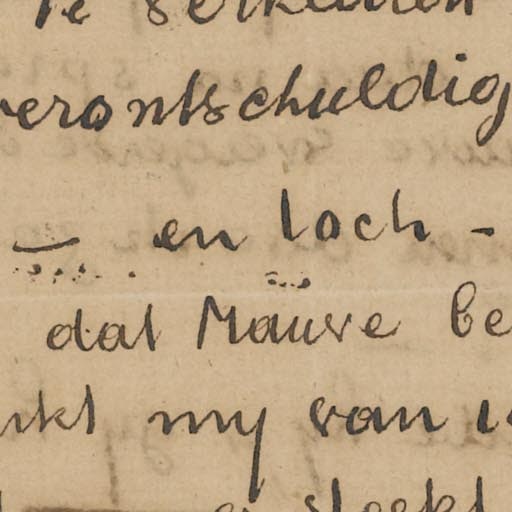 te
verontschuldig
— en toch -
dat Mauve be
rkt my van